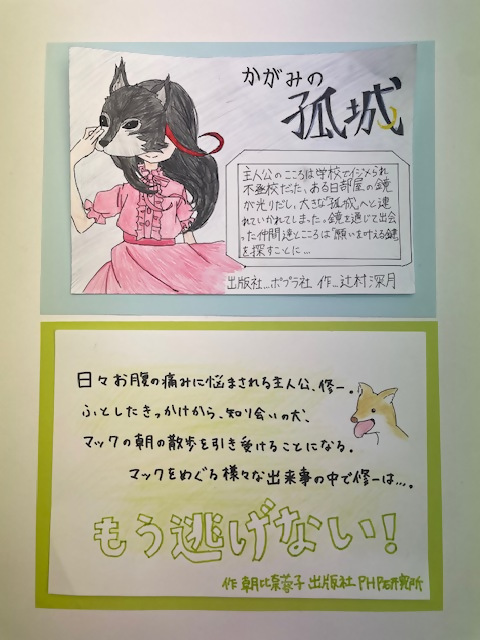 かがみの
孤城
主人公のこころは学校でイジメられ
不登校だった。ある日部屋の鏡
が光りだし、大きな"孤城"へと連
れていかれてしまった。鏡を通じて出会
った仲間達とこころは「願いを叶える鍵」
を探すことに…
出版社…ポプラ社 作…辻村深月
日々お腹の痛みに悩まされる主人公、修一。
ふとしたきっかけから、知り合いの犬、
マックの朝の散歩を引き受けることになる。
マックをめぐる様々な出来事の中で修一は…。
もう逃げない!
作 朝比奈蓉子 出版社 PHP研究所